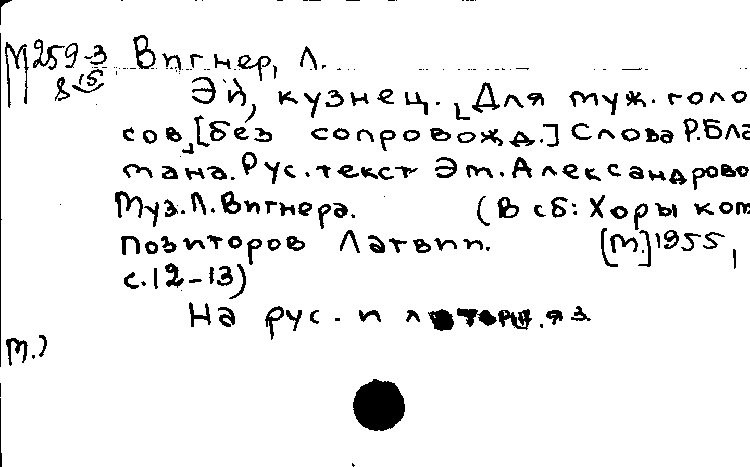 М259-3 Вигнер, Л.
8 15 Эй, кузнец. [Для муж. голо
сов,] [без сопровожд.] Слова Р. Бла
мана. Рус. текст Эм. Александрово
Муз. Л. Вигнера. (В сб: Хоры ком
позиторов Латвии. [М.] 1955,
с. 12-13)
На рус. и яз.
М.)